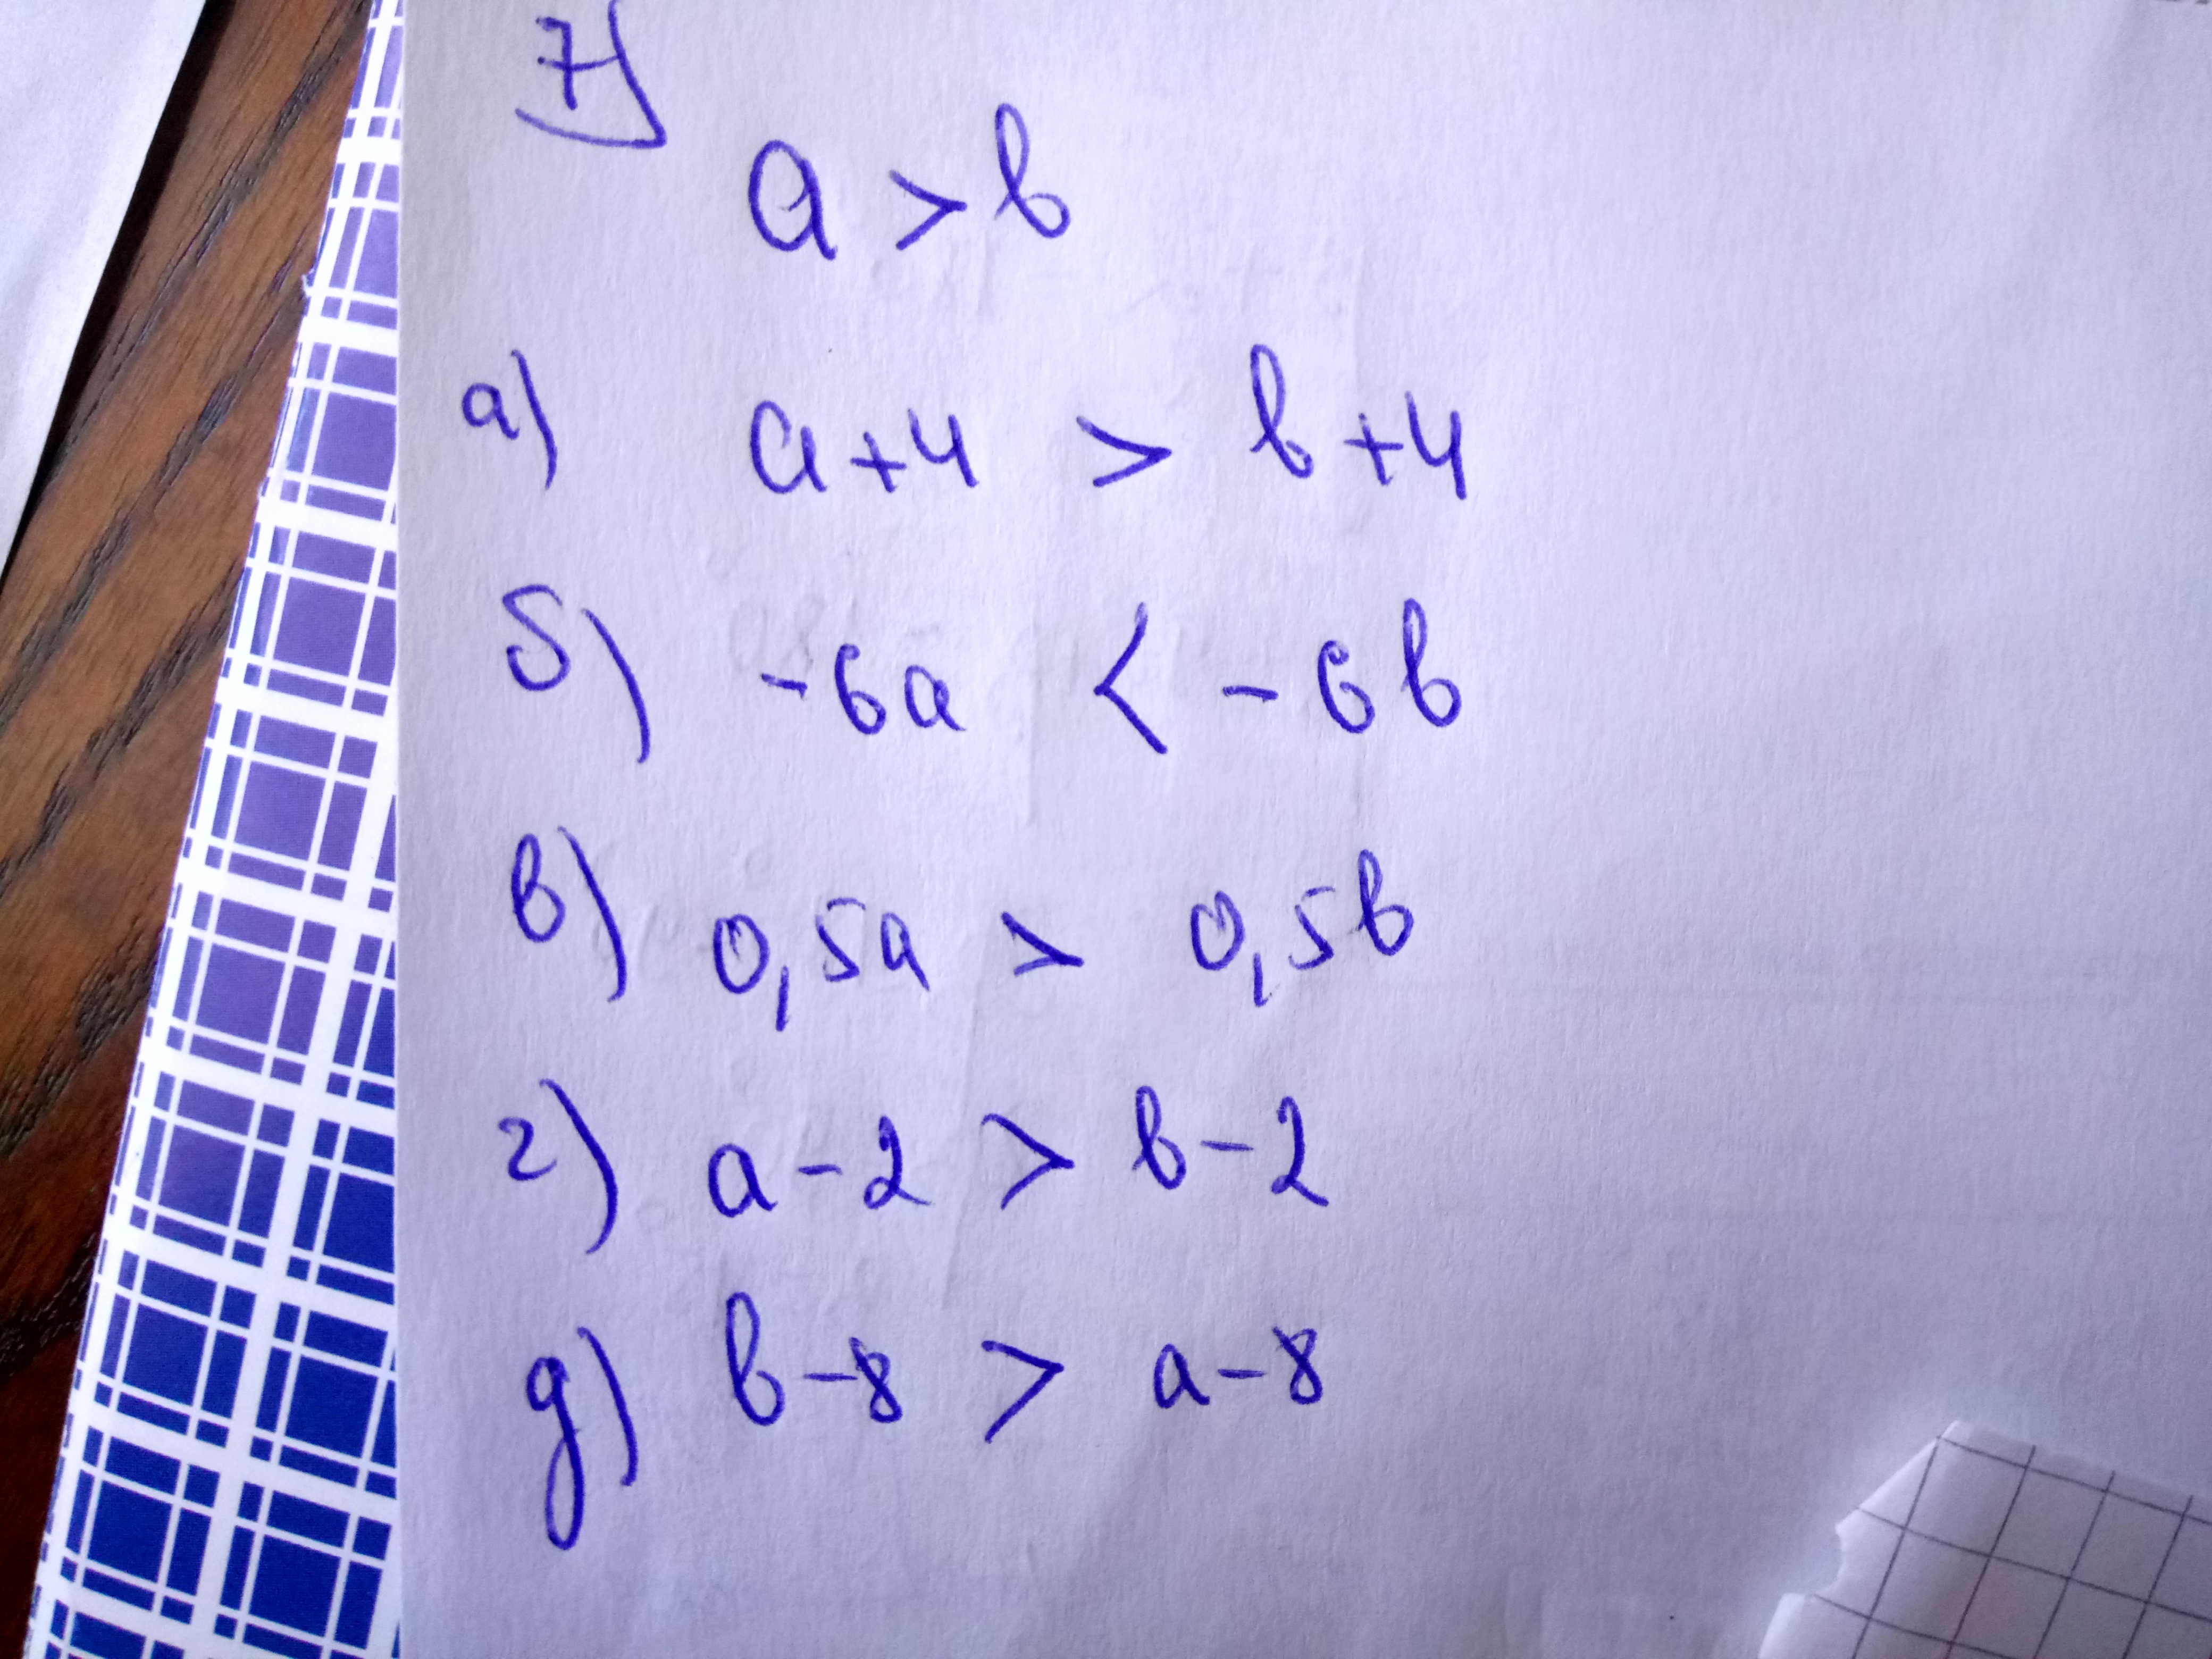 7)
a > b
а) a+4 > b+4
б) -6a < -6b
в) 0,5a > 0,5b
г) a-2 > b-2
д) b-8 > a-8